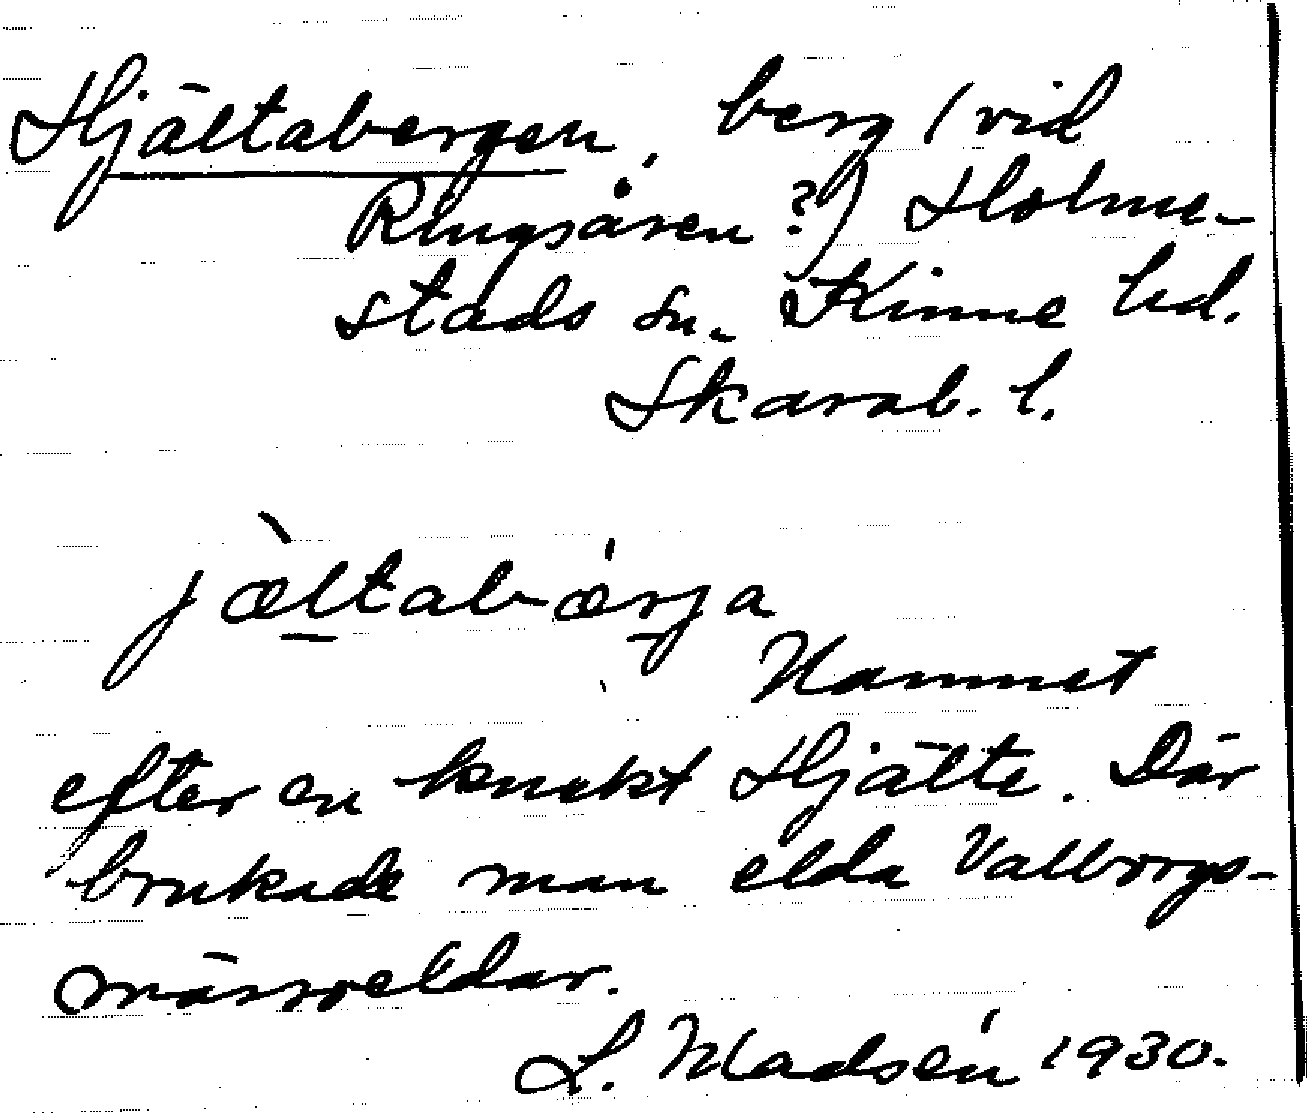 Hjältabergen, berg (vid
Ringsåsen?) Holme-
stads sn. Kinne hd.
Skarab. l.
jæ̀ltabǽrja
Namnet
efter en knekt Hjälte. Där
brukade man elda Valborgs-
mässoeldar.
L. Madsén 1930.